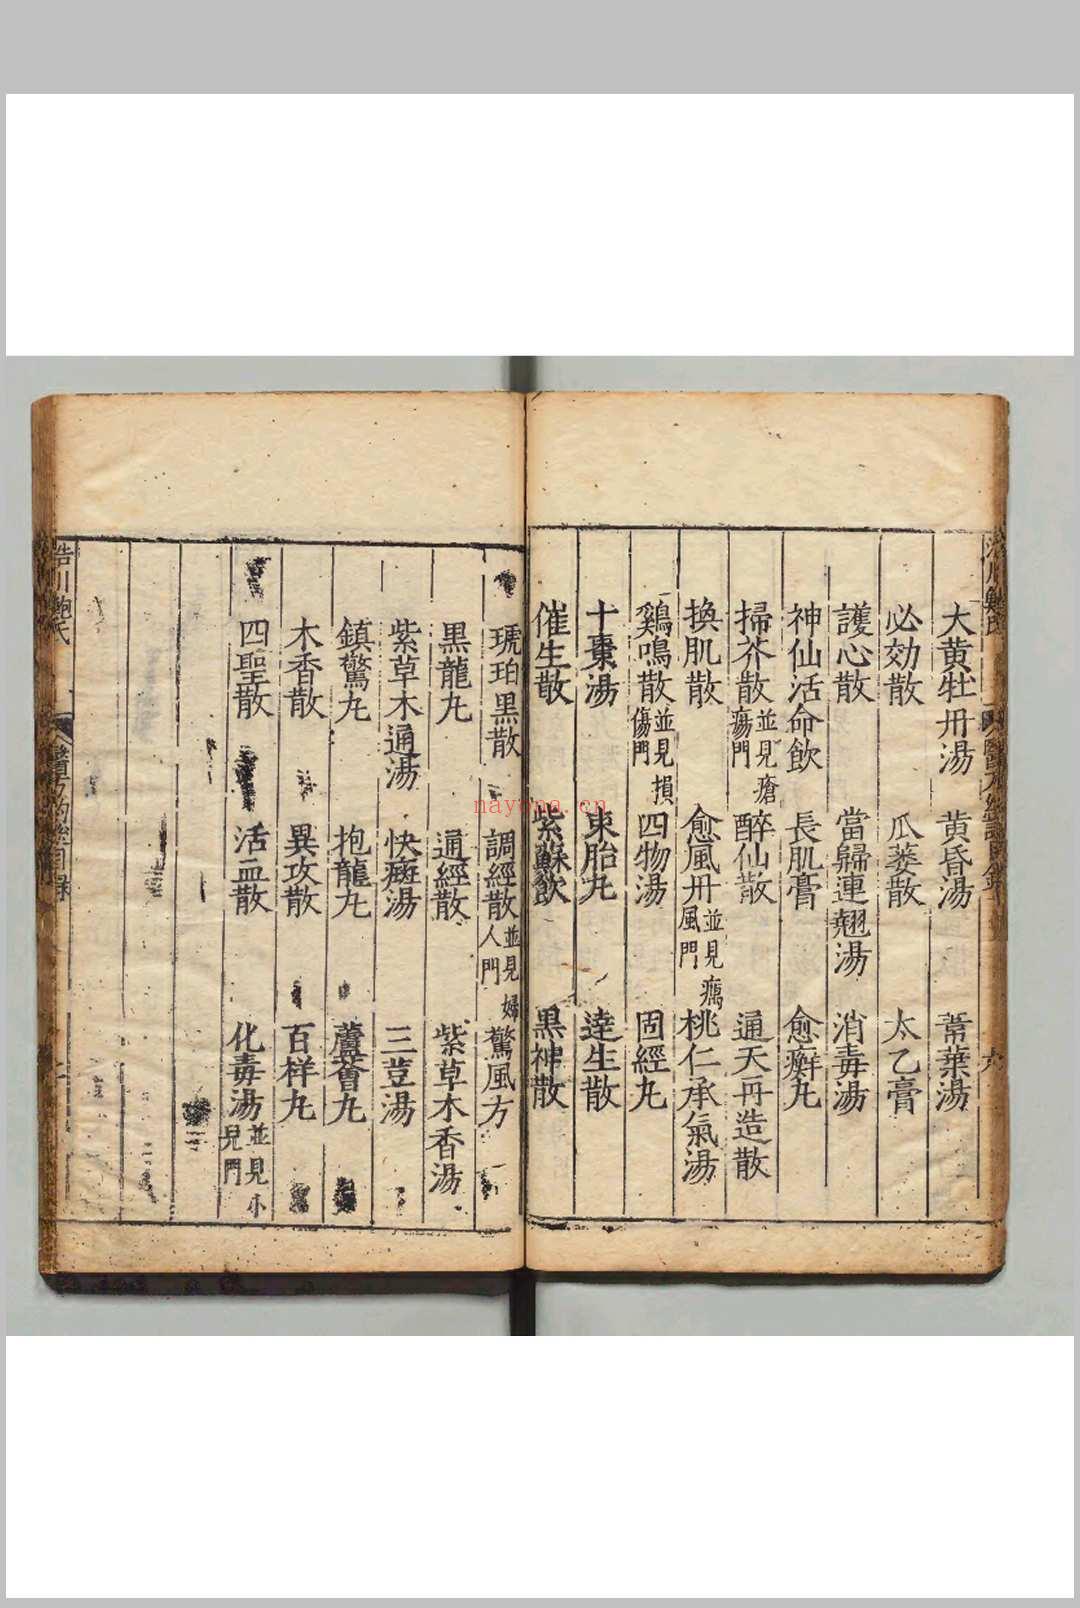 大黄牡丹湯 黄昏湯 葦葉湯
必効散 瓜蔞散 太乙膏
護心散 當歸連翹湯 消毒湯
神仙活命飲 長肌膏 愈癬丸
掃芥散並見瘡瘍門 醉仙散 通天再造散
換肌散 愈風丹並見癘風門 桃仁承氣湯
鷄鳴散並見損傷門 四物湯 固經丸
十棗湯 束胎丸 達生散
催生散 紫蘇飲 黒神散
琥珀黒散 調經散並見婦人門 驚風方
黒龍丸 通經散 紫草木香湯
紫草木通湯 快癍湯 三荳湯
鎮驚丸 抱龍丸 蘆薈丸
木香散 異攻散 百样丸
四聖散 活血散 化毒湯並見小兒門
浩川鮑氏
nayona.cn